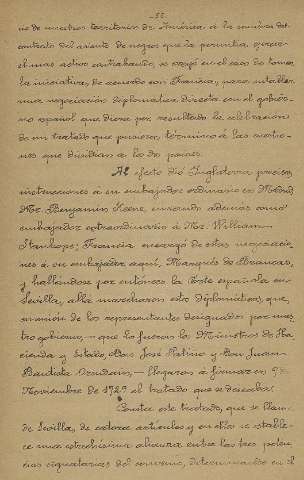 -55-
no de nuestros territorios de América á la sombra del
contrato del asiento de negros que la permitía ejercer
el mas activo contrabando, se creyó en el caso de tomar
la iniciativa, de acuerdo con Francia, para entablar
una negociación diplomática directa con el gobier-
no español que diera por resultado la celebración
de un tratado que pusiera término á las cuestio-
nes que dividían á los dos países.
Al efecto dió Inglaterra precisas
instrucciones á su embajador ordinario en Madrid,
Mr. Benjamin Keene, enviando además como
embajador extraordinario á Mr. William
Stanhope; Francia encargó de estas negociacio-
nes á su embajador aquí, Marqués de Brancas,
y hallándose por entonces la Corte española en
Sevilla, allá marcharon estos diplomáticos, que,
en unión de los representantes designados por nues-
tro gobierno,— que lo fueron los Ministros de Ha-
cienda y Estado, Don José Patiño y Don Juan
Bautista Orendain,— llegaron á firmar en 9 de
Noviembre de 1729 el tratado que se deseaba.
Consta este tratado, que se llamó
de Sevilla, de catorce artículos y en ellos se estable-
ce una estrechísima alianza entre las tres poten-
cias signatarias del convenio, determinando en el